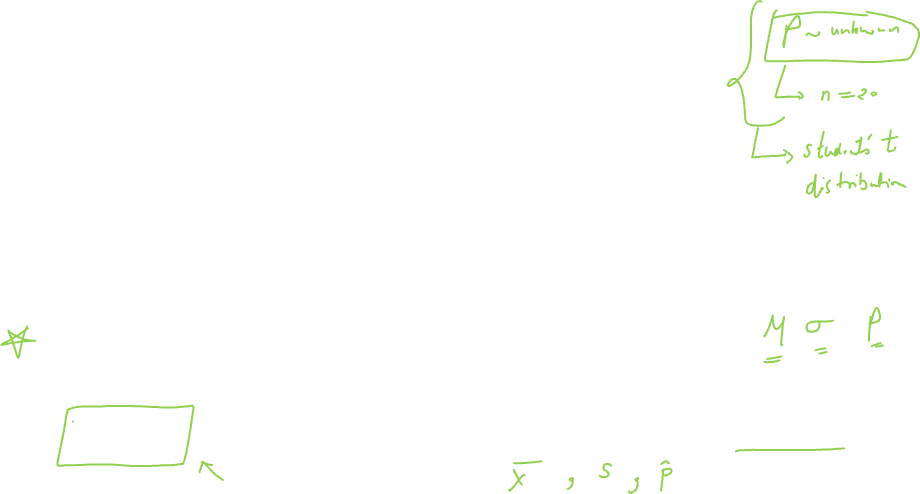 P ~ unknown
n = 20
student's t
distribution
μ σ P
x̄ , s , p̂